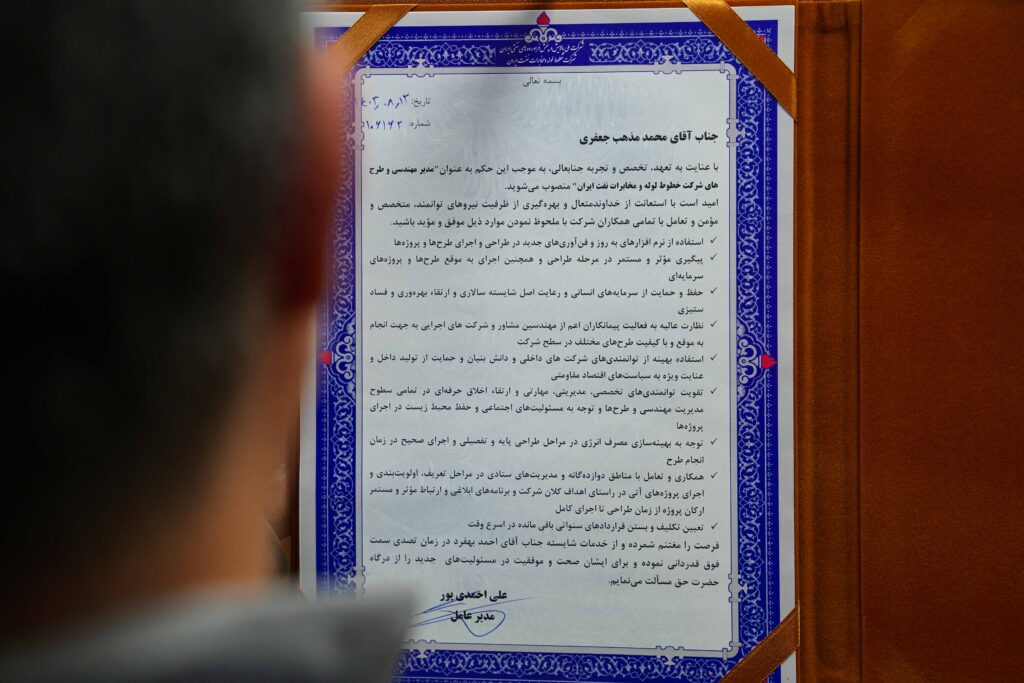 شرکت ملی پالایش و پخش فرآورده‌های نفتی ایران
شرکت خطوط لوله و مخابرات نفت ایران
بسمه تعالی
تاریخ: ۱۴۰۳/۰۸/۱۳
شماره: ۱۰۶۱۶۲
جناب آقای محمد مذهب جعفری
با عنایت به تعهد، تخصص و تجربه جنابعالی، به موجب این حکم به عنوان"مدیر مهندسی و طرح
های شرکت خطوط لوله و مخابرات نفت ایران" منصوب می‌شوید.
امید است با استعانت از خداوندمتعال و بهره‌گیری از ظرفیت نیروهای توانمند، متخصص و
مؤمن و تعامل با تمامی همکاران شرکت با ملحوظ نمودن موارد ذیل موفق و مؤید باشید.
✓ استفاده از نرم افزارهای به روز و فن‌آوری‌های جدید در طراحی و اجرای طرح‌ها و پروژه‌ها
✓ پیگیری مؤثر و مستمر در مرحله طراحی و همچنین اجرای به موقع طرح‌ها و پروژه‌های
سرمایه‌ای
✓ حفظ و حمایت از سرمایه‌های انسانی و رعایت اصل شایسته سالاری و ارتقاء بهره‌وری و فساد
ستیزی
✓ نظارت عالیه به فعالیت پیمانکاران اعم از مهندسین مشاور و شرکت های اجرایی به جهت انجام
به موقع و با کیفیت طرح‌های مختلف در سطح شرکت
✓ استفاده بهینه از توانمندی‌های شرکت های داخلی و دانش بنیان و حمایت از تولید داخل و
عنایت ویژه به سیاست‌های اقتصاد مقاومتی
✓ تقویت توانمندی‌های تخصصی، مدیریتی، مهارتی و ارتقاء اخلاق حرفه‌ای در تمامی سطوح
مدیریت مهندسی و طرح‌ها و توجه به مسئولیت‌های اجتماعی و حفظ محیط زیست در اجرای
پروژه‌ها
✓ توجه به بهینه‌سازی مصرف انرژی در مراحل طراحی پایه و تفصیلی و اجرای صحیح در زمان
انجام طرح
✓ همکاری و تعامل با مناطق دوازده‌گانه و مدیریت‌های ستادی در مراحل تعریف، اولویت‌بندی و
اجرای پروژه‌های آتی در راستای اهداف کلان شرکت و برنامه‌های ابلاغی و ارتباط مؤثر و مستمر
ارکان پروژه از زمان طراحی تا اجرای کامل
✓ تعیین تکلیف و بستن قراردادهای سنواتی باقی مانده در اسرع وقت
فرصت را مغتنم شمرده و از خدمات شایسته جناب آقای احمد بهفرد در زمان تصدی سمت
فوق قدردانی نموده و برای ایشان صحت و موفقیت در مسئولیت‌های جدید را از درگاه
حضرت حق مسألت می‌نمایم.
علی احمدی پور
مدیر عامل